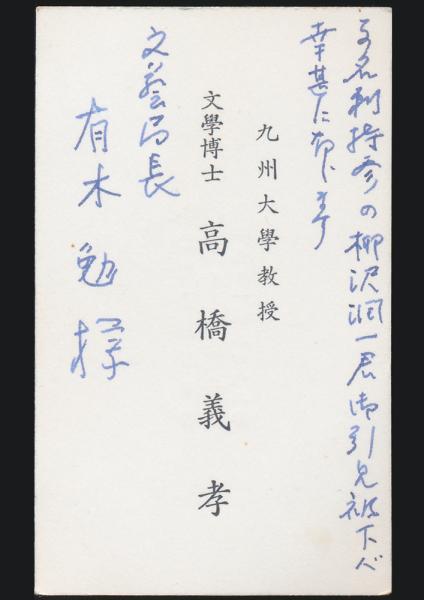 名刺持参の柳沢潤一君御引見被下バ
幸甚に存じます
九州大學教授
文學博士 高橋義孝
文藝局長
有木勉様